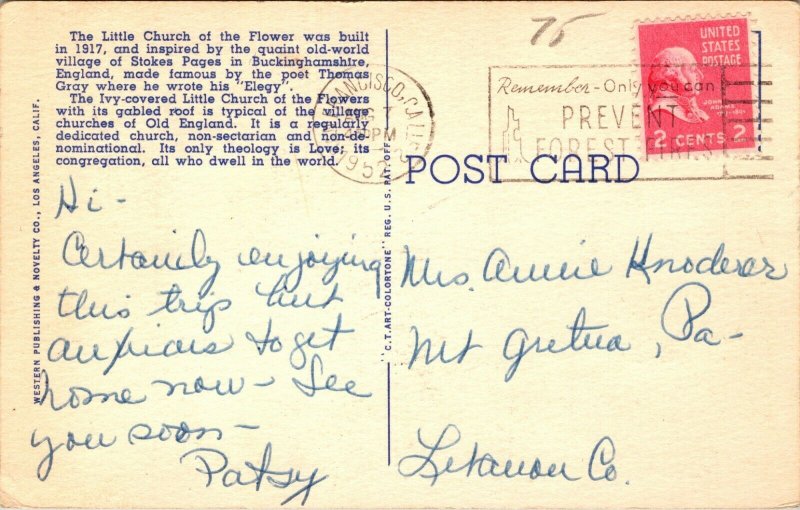 The Little Church of the Flower was built
in 1917, and inspired by the quaint old-world
village of Stokes Pages in Buckinghamshire,
England, made famous by the poet Thomas
Gray where he wrote his "Elegy".
The Ivy-covered Little Church of the Flowers
with its gabled roof is typical of the village
churches of Old England. It is a regularly
dedicated church, non-sectarian and non-de-
nominational. Its only theology is Love; its
congregation, all who dwell in the world.
WESTERN PUBLISHING & NOVELTY CO., LOS ANGELES, CALIF.
"C.T. ART-COLORTONE" REG. U.S. PAT. OFF.
75
FRANCISCO, CALIF
PM
1952
Remember - Only you can
PREVENT
FOREST FIRES
UNITED
STATES
POSTAGE
JOHN
ADAMS
2 CENTS 2
POST CARD
Hi -
Certainly enjoying
this trip but
anxious to get
home now - See
you soon -
Patsy
Mrs. Annie Knoderer
Mt Gretna, Pa -
Lebanon Co.